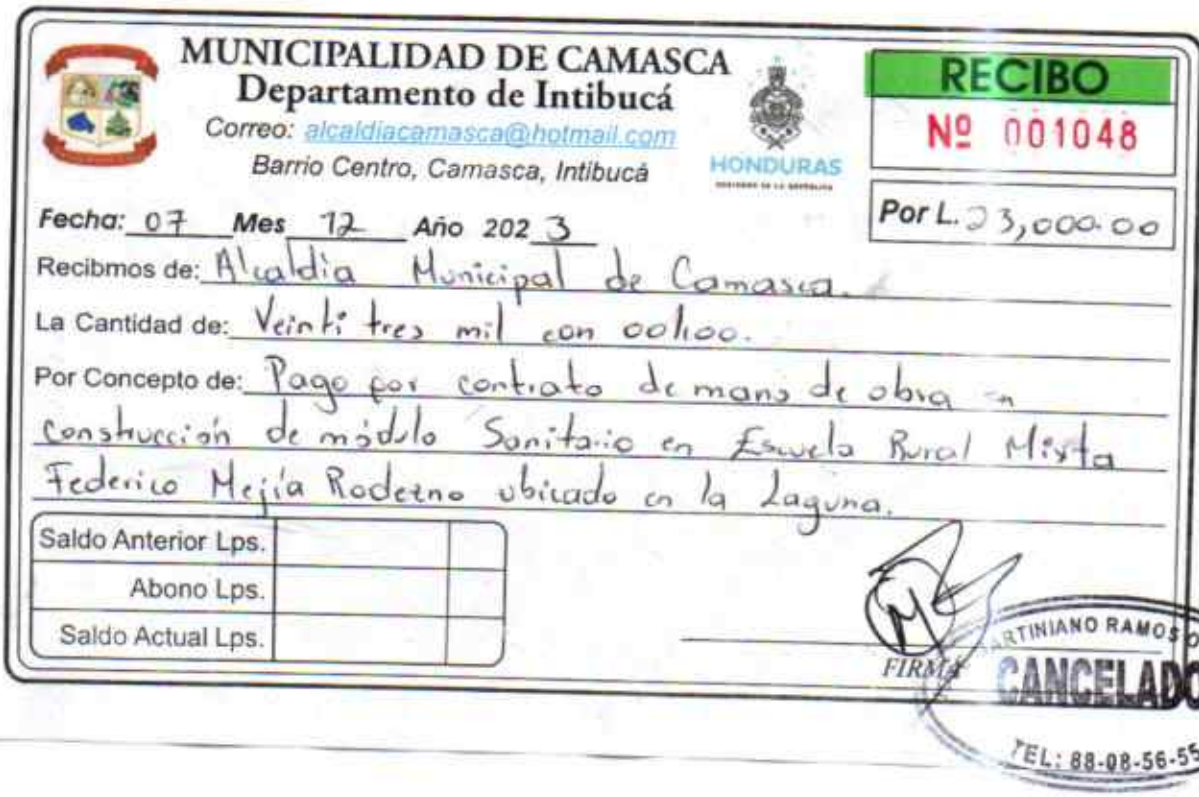 MUNICIPALIDAD DE CAMASCA
Departamento de Intibucá
Correo: alcaldiacamasca@hotmail.com
Barrio Centro, Camasca, Intibucá
HONDURAS
GOBIERNO DE LA REPÚBLICA
RECIBO
Nº 001048
Por L. 23,000.00
Fecha: 07 Mes 12 Año 2023
Recibmos de: Alcaldia Municipal de Camasca.
La Cantidad de: Veinti tres mil con 00/100.
Por Concepto de: Pago por contrato de mano de obra en
construcción de módulo Sanitario en Escuela Rural Mixta
Federico Mejía Rodezno ubicado en la Laguna.
Saldo Anterior Lps.
Abono Lps.
Saldo Actual Lps.
FIRMA
ARTINIANO RAMOS O
CANCELADO
TEL: 88-08-56-55